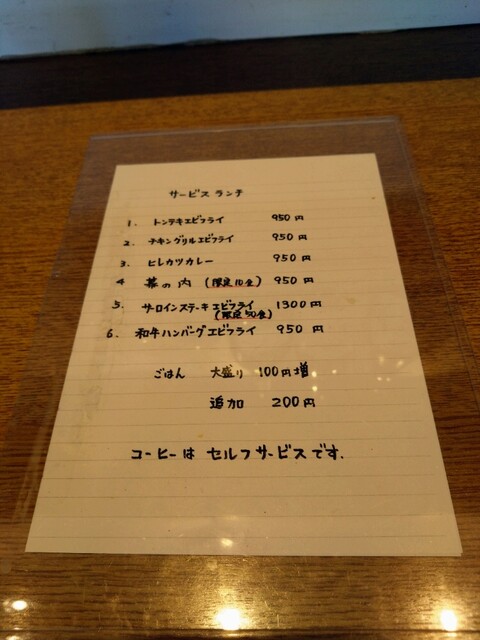 サービスランチ
1. トンテキエビフライ 950円
2. チキングリルエビフライ 950円
3. ヒレカツカレー 950円
4 幕の内 (限定10食) 950円
5. サーロインステーキエビフライ 1300円
(限定50食)
6. 和牛ハンバーグエビフライ 950円
ごはん 大盛り 100円増
追加 200円
コーヒーは セルフサービスです.